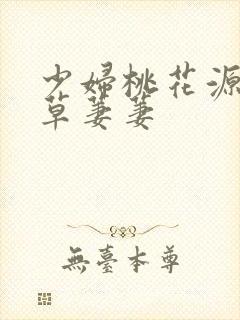 少婦桃花源
草萋萋
無臺本尊